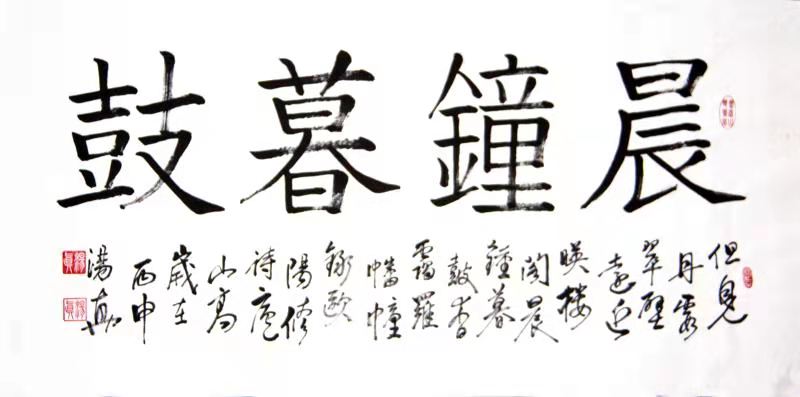 晨鐘暮鼓
但見
丹霞
翠壁
遠近
暎樓
閣晨
鐘暮
鼓杳
靄羅
幡幢
錄歐
陽修
詩廬
山高
歲在
丙申
湯真